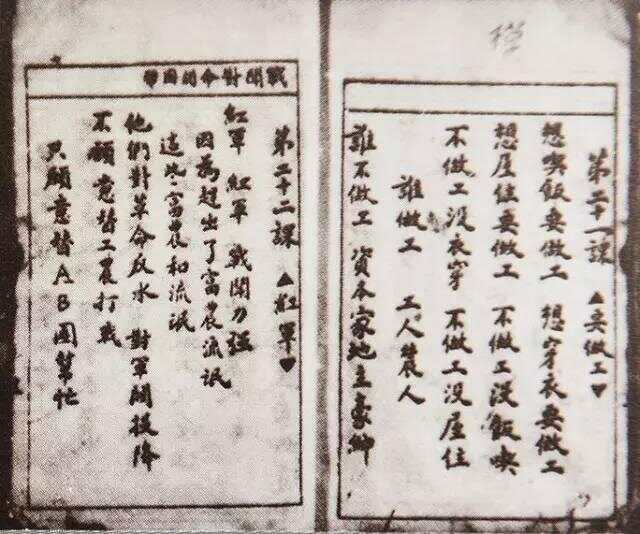 第二十一課 ▲要做工▼
想喫飯要做工 想穿衣要做工
想屋住要做工 不做工沒飯喫
不做工沒衣穿 不做工沒屋住
誰做工 工人農人
誰不做工 資本家地主豪紳
第二十二課 ▲紅軍▼
紅軍 紅軍 戰鬥力強
因為趕出了富農流氓
這些富農和流氓
他們對革命反水 對軍閥投降
不願意替工農打戰
只願意替AB團幫忙